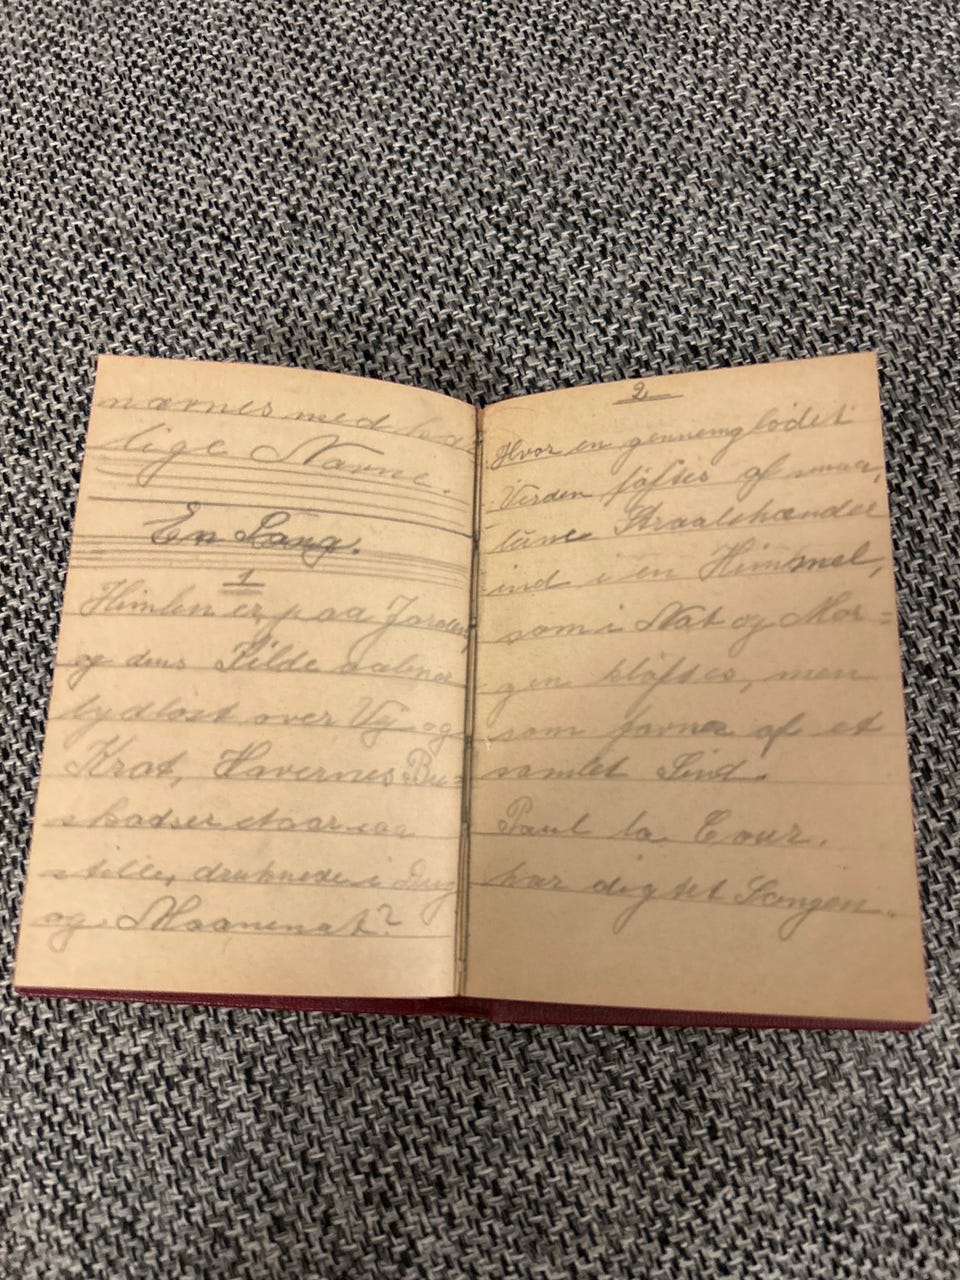 nævnes med
lige Navne.
En Sang.
1
Himlen er paa Jorden,
og dens Kilde aabner
lydløst over Vej og
Krat, Havernes Bu=
skadser staar saa
stille, druknede i Dug
og Maanenat?
2
Hvor en gennemglødet
Verden løftes af smaa,
lune Straalehænder
ind i en Himmel,
som i Nat og Mor=
gen kløftes, men
som favnes af et
samlet Sind.
Paul la Cour.
har digtet Sangen.